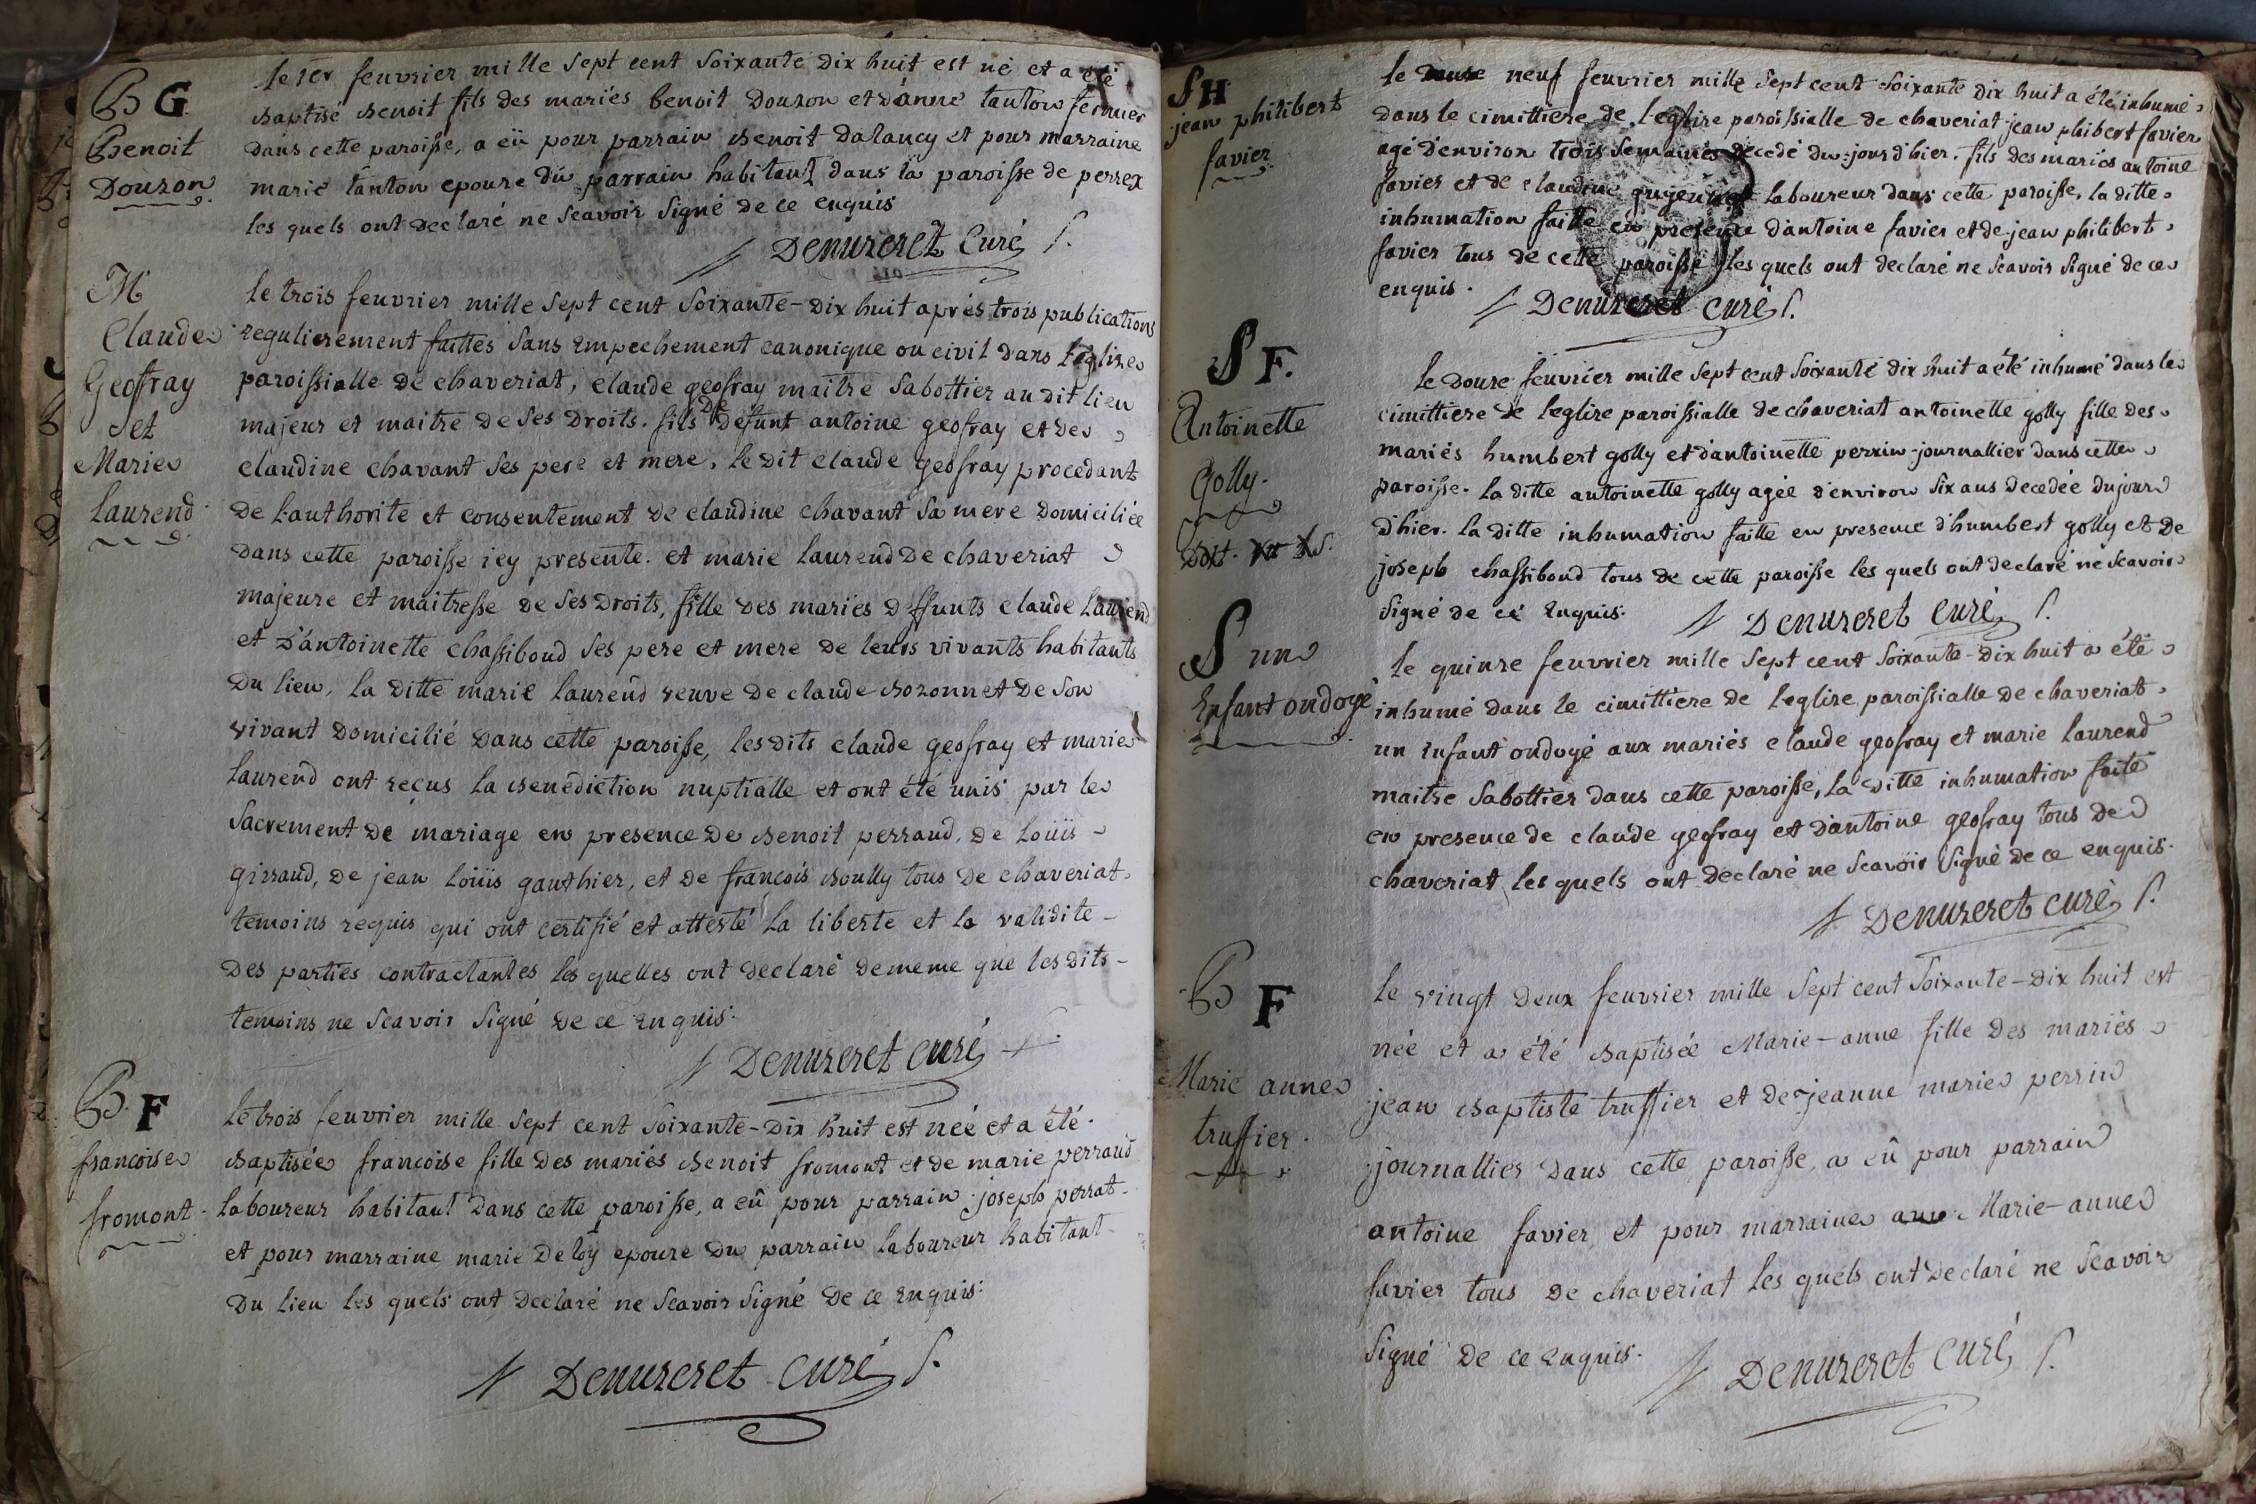 B G
Benoit
Douzon
le 1er feuvrier mille sept cent soixante dix huit est né et a été
baptisé benoit fils des mariés benoit Douzon et d'anne tanton fermier
dans cette paroisse, a eü pour parrain benoit dalancy et pour marraine
marie tanton epouse du parrain habitant dans la paroisse de perrex
les quels ont declaré ne scavoir signé de ce enquis
Denuzeret Curé
M
Claude
Geoffray
et
Marie
Laurend
le trois feuvrier mille sept cent soixante-dix huit aprés trois publications
regulierement faittes sans empechement canonique ou civil dans l'eglise
paroissialle de chaveriat, claude geofray maitre sabottier au dit lieu
majeur et maitre de ses droits. fils de defunt antoine geofray et de
claudine chavant ses pere et mere, le dit claude geofray procedant
de l'authorité et consentement de claudine chavant sa mere domiciliée
dans cette paroisse icy presente. et marie laurend de chaveriat
majeure et maitresse de ses droits, fille des mariés deffunts claude laurend
et d'antoinette chassiboud ses pere et mere de leurs vivants habitants
du lieu, la ditte marie laurend veuve de claude bozonnet de son
vivant domicilié dans cette paroisse, les dits claude geofray et marie
laurend ont reçus la benediction nuptialle et ont été unis par le
sacrement de mariage en presence de benoit perraud, de loüis
girraud, de jean loüis gauthier, et de francois boully tous de chaveriat
temoins requis qui ont certifié et attesté la liberte et la validite
des parties contractantes les quelles ont declaré de meme que les dits
temoins ne scavoir signé de ce enquis.
Denuzeret curé
B. F
francoise
fromont
le trois feuvrier mille sept cent soixante-dix huit est née et a été
baptisée francoise fille des mariés benoit fromont et de marie perraud
laboureur habitant dans cette paroisse, a eû pour parrain joseph perrat
et pour marraine marie deloÿ epouse du parrain laboureur habitant
du lieu les quels ont declaré ne scavoir signé de ce enquis.
Denuzeret curé
S H
jean philibert
favier
le neuf feuvrier mille sept cent soixante dix huit a été inhumé
dans le cimittiere de l'eglise paroissialle de chaveriat jean phibert favier
agé d'environ trois semaines decedé du jour d'hier. fils des mariés antoine
favier et de claudine laboureur dans cette paroisse, la ditte
inhumation faitte en presence d'antoine favier et de jean philibert
favier tous de cette paroisse les quels ont declaré ne scavoir signé de ce
enquis.
Denuzeret curé
S F.
Antoinette
Golly.
le douze feuvrier mille sept cent soixante dix huit a été inhumé dans le
cimittiere de l'eglise paroissialle de chaveriat antoinette golly fille des
mariés humbert golly et d'antoinette perrin journallier dans cette
paroisse. la ditte antoinette golly agée d'environ six ans decedée du jour
d'hier. la ditte inhumation faitte en presence d'humbert golly et de
joseph chassiboud tous de cette paroisse les quels ont declaré ne scavoir
signé de ce enquis.
Denuzeret curé
S un
enfant ondoyé
le quinze feuvrier mille sept cent soixante-dix huit a été
inhumé dans le cimittiere de l'eglise paroissialle de chaveriat
un enfant ondoyé aux mariés claude geofray et marie laurend
maitre sabottier dans cette paroisse, la ditte inhumation faite
en presence de claude geofray et d'antoine geofray tous de
chaveriat les quels ont declaré ne scavoir signé de ce enquis.
Denuzeret curé
B F
Marie anne
truffier.
le vingt deux feuvrier mille sept cent soixante-dix huit est
née et a été baptisée Marie-anne fille des mariés
jean baptiste truffier et de jeanne marie perrin
journallier dans cette paroisse, a eû pour parrain
antoine favier et pour marraine Marie-anne
favier tous de chaveriat les quels ont declaré ne scavoir
signé de ce enquis.
Denuzeret curé